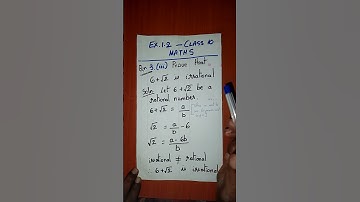 EX.1.2 – CLASS 10
MATHS
Qn.3.(iii) Prove that
6+√2 is irrational
Soln. Let 6+√2 be a
rational number.
6+√2 = a/b
√2 = a/b - 6
√2 = a-6b/b
irrational ≠ rational
6+√2 is irrational